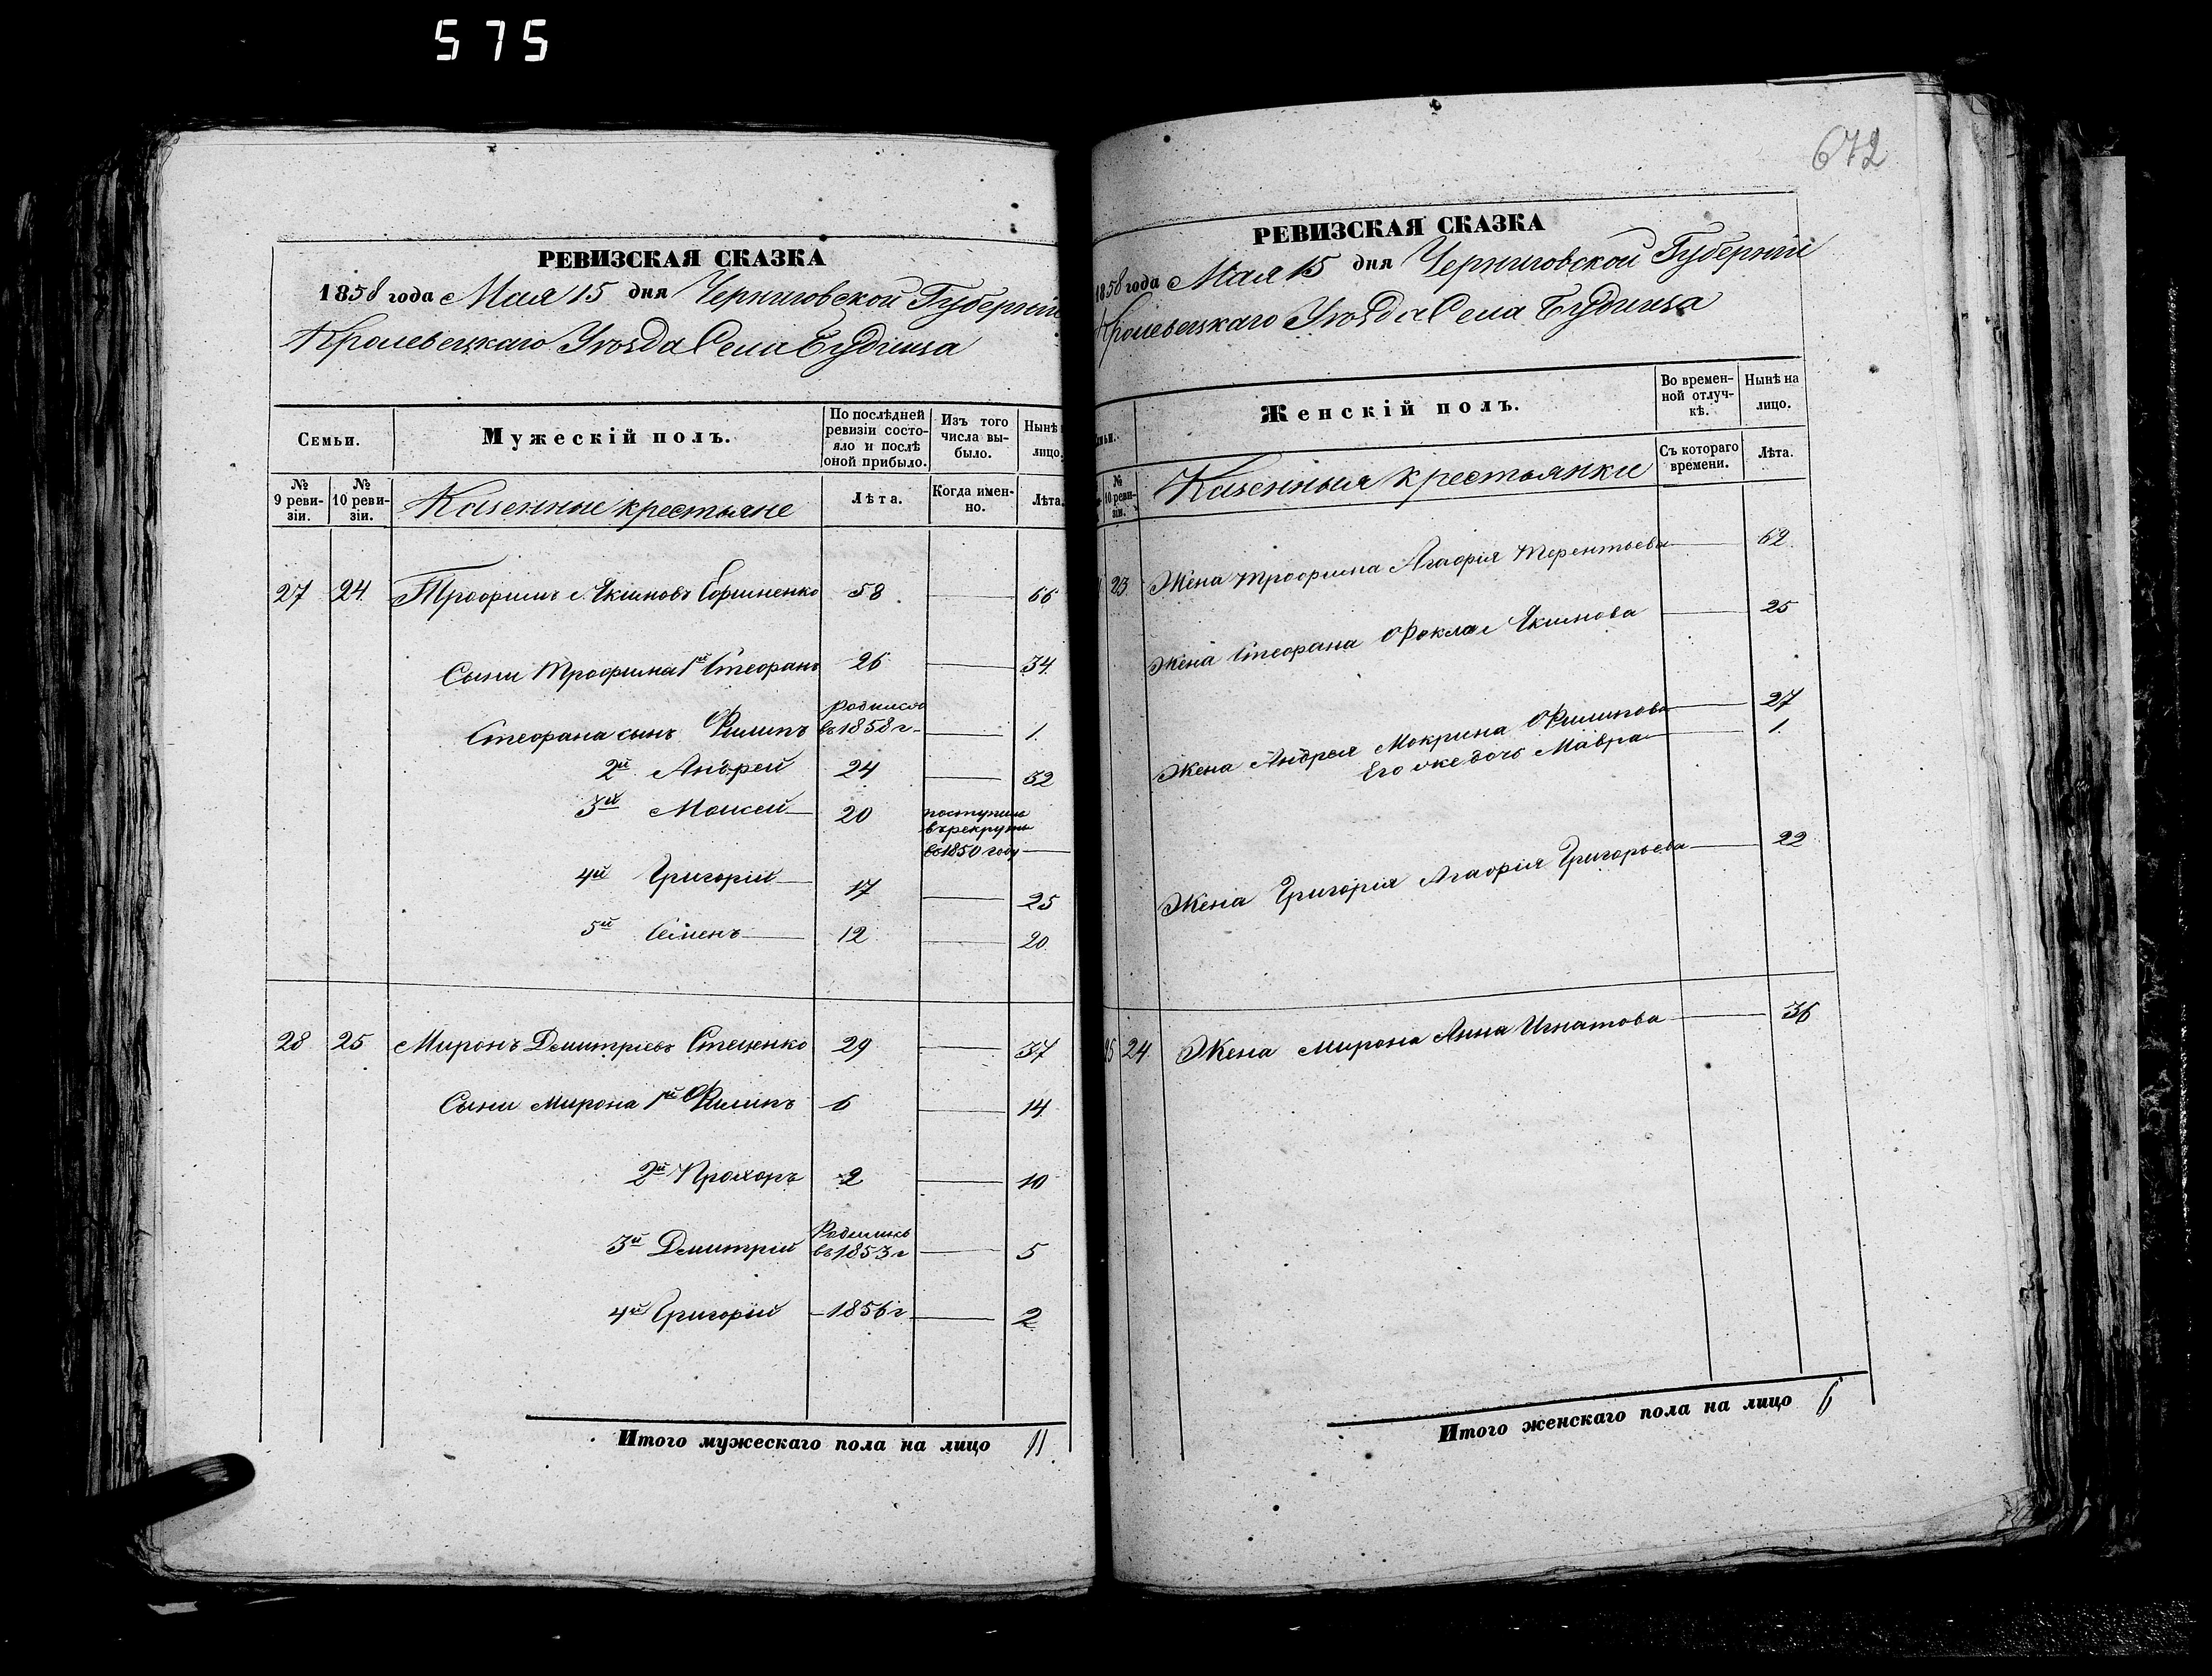 575
672
РЕВИЗСКАЯ СКАЗКА
1858 года Мая 15 дня Черниговской Губерніи
Кролевецкаго Уѣзда Села Будища
Семьи.
Мужескій полъ.
По послѣдней ревизіи состояло и послѣ оной прибыло.
Изъ того числа выбыло.
Нынѣ
лицо.
№ 9 ревизіи.
№ 10 ревизіи.
Казенные крестьяне
Лѣта.
Когда именно.
Лѣта.
27 24 Трофимъ Якимовъ 58 66
Сыни Трофима 1й Стефанъ 26 34
Стефана сынъ Филипъ родился въ 1858 г 1
2й Андрей 24 32
3й Моисей 20 поступилъ въ рекруты въ 1850 году
4й Григорій 17 25
5й Семенъ 12 20
28 25 Миронъ Дмитріевъ Стеценко 29 37
Сыни Мирона 1й Филипъ 6 14
2й Прохоръ 2 10
3й Дмитрій Родился въ 1853 г 5
4й Григорій 1856 г 2
Итого мужескаго пола на лицо 11
РЕВИЗСКАЯ СКАЗКА
1858 года Мая 15 дня Черниговской Губерніи
Кролевецкаго Уѣзда Села Будища
Женскій полъ.
Во временной отлучкѣ.
Нынѣ на лицо.
№ 10 ревизіи.
Казенныя крестьянки
Съ котораго времени.
Лѣта.
23 Жена Трофима Агафія Терентьева 62
Жена Стефана Фекла Якимова 25
Жена Андрея Мокрина Филипова 27
Его же дочь Мавра 1
Жена Григорія Агафія Григорьева 22
24 Жена Мирона Анна Игнатова 36
Итого женскаго пола на лицо 6